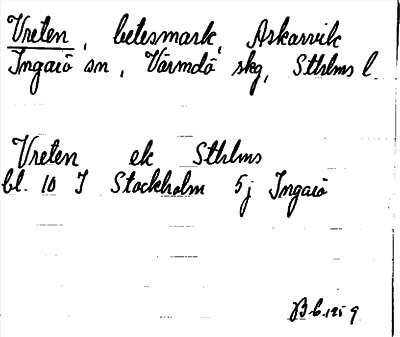 Vreten, betesmark, Askarvik
Ingarö sn, Värmdö skg, Sthlms l
Vreten ek Sthlms
bl. 10 I Stockholm 5j Ingarö